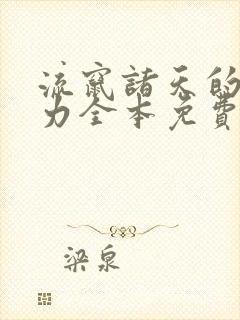 流竄諸天的
力全本免費
梁泉